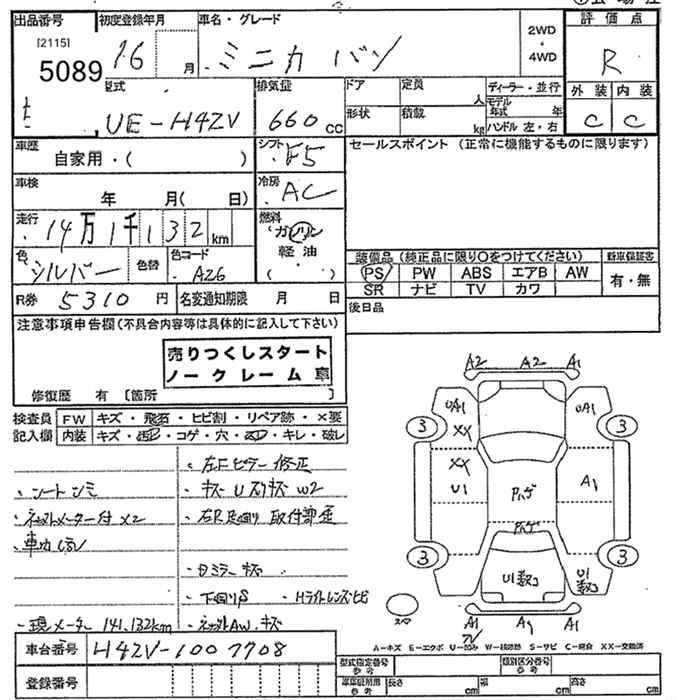 出品番号
[2115]
5089
初度登録年月
16
月
車名・グレード
ミニカ バン
2WD
・
4WD
評価点
R
外装
内装
C
C
型式
UE-H42V
排気量
660 CC
ドア
形状
定員
人
積載
kg
ディーラー・並行
モデル年式
年
ハンドル 左・右
車歴
自家用・( )
シフト
F5
セールスポイント (正常に機能するものに限ります)
車検
年 月( 日)
冷房
AC
走行
14万1千132km
燃料
ガソリン
軽油
( ・ )
色
シルバー
色替
色コード
A26
装備品 (純正品に限り○をつけてください)
新車保証書
PS PW ABS エアB AW
SR ナビ TV カワ
有・無
R券
5310円
名変通知期限 月 日
後日品
注意事項申告欄(不具合内容等は具体的に記入して下さい)
売りつくしスタート
ノークレーム車
修復歴 有 〔箇所
検査員
記入欄
FW キズ・飛石・ヒビ割・リペア跡・×要
内装 キズ・汚・コゲ・穴・・キレ・破レ
・左Fピラー修正
・シートシミ
W2
X2
・右R足廻り 取付
・現メーター 141,132km
車台番号
H42V-1007708
登録番号
A2 A2 A1
UA1
UA1
XX
XX
U1
A1
3
3
3
3
U1数コ
U1数コ
スペア
A1 A9 A1
A-キズ E-エクボ U-凹み W-補修跡 S-サビ C-腐食 XX-交換済
型式指定番号
参考
類別区分番号
参考
車庫証明用
参考
長さ cm
幅 cm
高さ cm